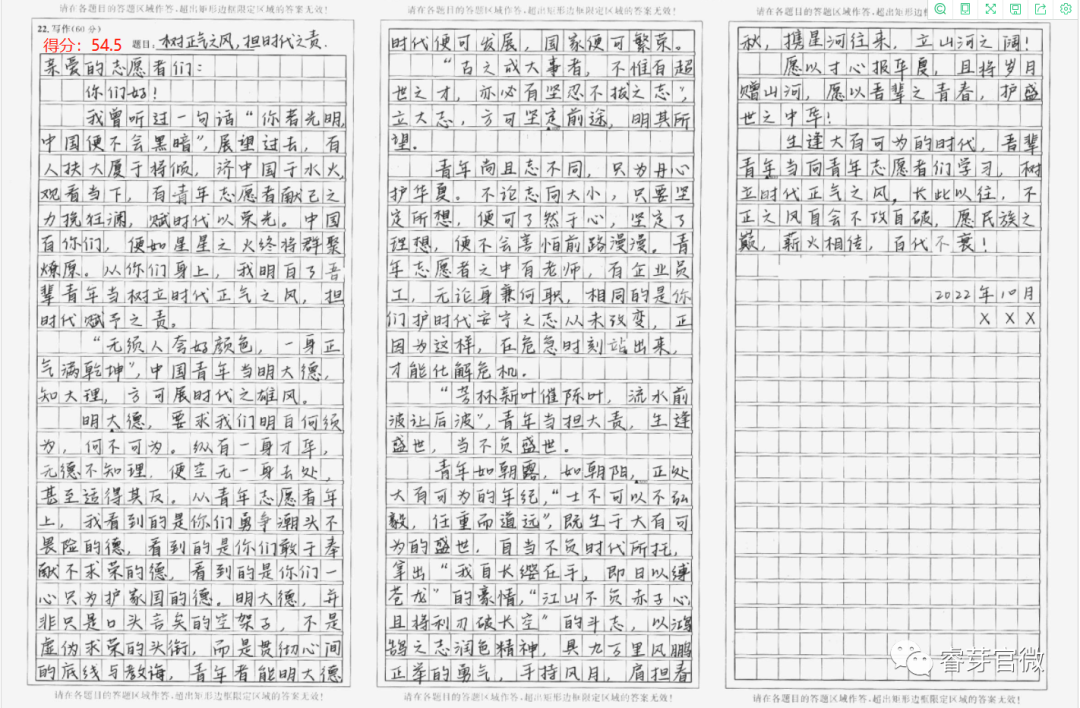 请在各题目的答题区域作答,超出矩形边框限定区域的答案无效!
22. 写作(60分)
得分：54.5 题目：树正气之风，担时代之责.
亲爱的志愿者们：
你们好！
我曾听过一句话“你若光明,
中国便不会黑暗”,展望过去，有
人扶大厦于将倾，济中国于水火,
观看当下，有青年志愿者献己之
力挽狂澜，赋时代以荣光。中国
有你们，便如星星之火终将群聚
燎原。从你们身上，我明白了吾
辈青年当树立时代正气之风，担
时代赋予之责。
“无须人夸好颜色，一身正
气满乾坤”,中国青年当明大德,
知大理，方可展时代之雄风。
明大德，要求我们明白何须
为，何不可为。纵有一身才华,
无德不知理，便空无一身去处,
甚至适得其反。从青年志愿者年
上，我看到的是你们勇争潮头不
畏险的德，看到的是你们敢于奉
献不求荣的德，看到的是你们一
心只为护家国的德。明大德，并
非只是口头言矣的空架子，不是
虚伪求荣的头衔，而是贯彻心间
的底线与教诲，青年若能明大德
请在各题目的答题区域作答,超出矩形边框限定区域的答案无效!
请在各题目的答题区域作答,超出矩形边框限定区域的答案无效!
时代便可发展，国家便可繁荣。
“古之成大事者，不惟有超
世之才，亦必有坚忍不拔之志”,
立大志，方可坚定前途，明其所
望。
青年尚且志不同，只为丹心
护华夏。不论志向大小，只要坚
定所想，便可了然于心，坚定了
理想，便不会害怕前路漫漫。青
年志愿者之中有老师，有企业员
工，无论身兼何职，相同的是你
们护时代安宁之志从未改变，正
因为这样，在危急时刻站出来,
才能化解危机。
“芳林新叶催陈叶，流水前
波让后波”,青年当担大责，生逢
盛世，当不负盛世。
青年如朝露，如朝阳，正处
大有可为的年纪,“士不可以不弘
毅，任重而道远”,既生于大有可
为的盛世，自当不负时代所托,
拿出“我自长缨在手，即日以缚
苍龙”的豪情,“江山不负赤子心,
且将利刃破长空”的斗志，以鸿
鹄之志润色精神，具九万里风鹏
正举的勇气，手持风月，肩担春
请在各题目的答题区域作答,超出矩形边框限定区域的答案无效!
请在各题目的答题区域作答,超出矩形边框限定区域的答案无效!
秋，携星河往来，立山河之阔!
愿以寸心报华夏，且将岁月
赠山河，愿以吾辈之青春，护盛
世之中华！
生逢大有可为的时代，吾辈
青年当向青年志愿者们学习，树
立时代正气之风，长此以往，不
正之风自会不攻自破，愿民族之
巅，薪火相传，百代不衰！
2022年10月
X X X
请在各题目的答题区域作答,超出矩形边框限定区域的答案无效!
睿芽官微